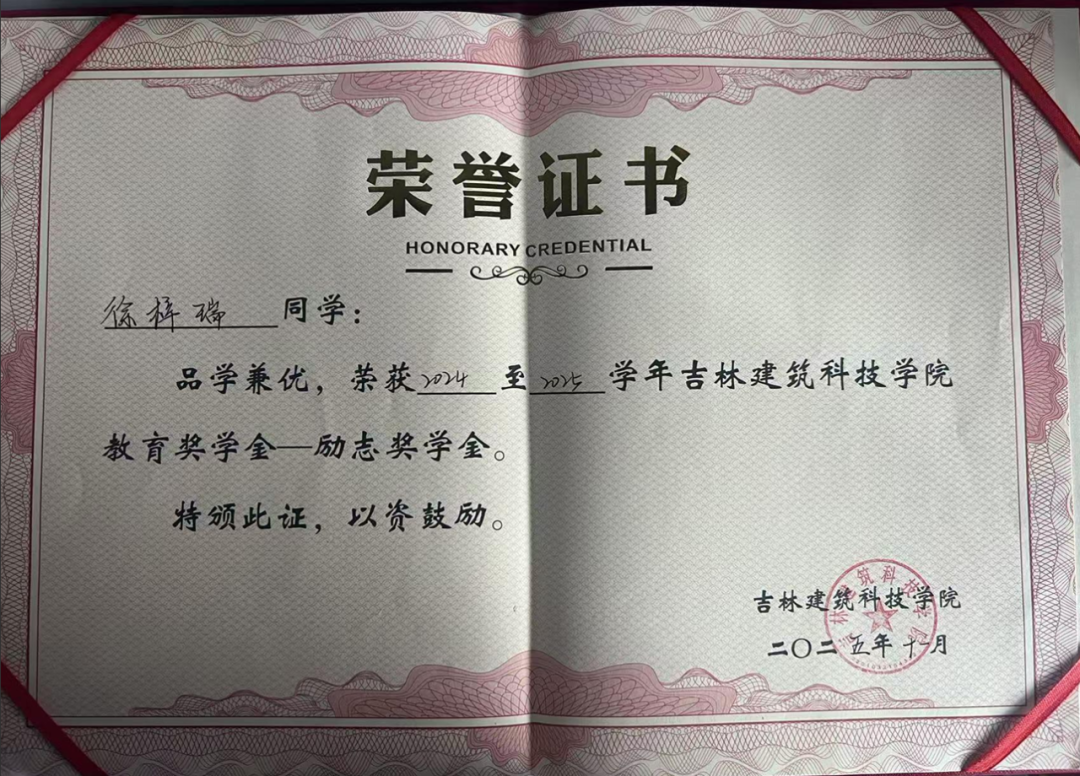 荣誉证书
HONORARY CREDENTIAL
徐梓瑞 同学：
品学兼优，荣获2024至2025学年吉林建筑科技学院
教育奖学金—励志奖学金。
特颁此证，以资鼓励。
吉林建筑科技学院
二〇二五年十一月
吉林建筑科技学院